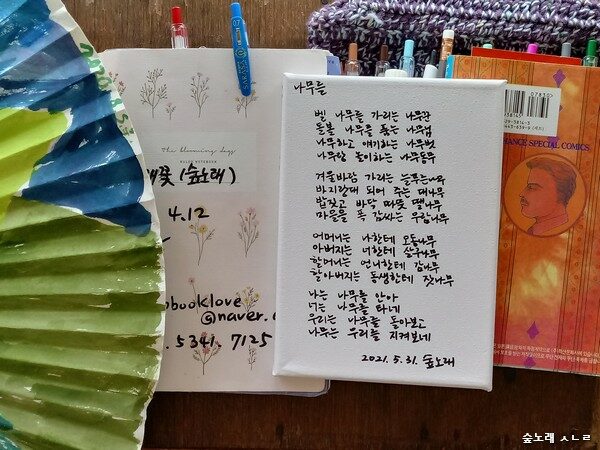 나무를
벨 나무를 가리는 나무꾼
돌볼 나무를 돕는 나무님
나무하고 얘기하는 나무벗
나무랑 놀이하는 나무동무
겨울바람 가리는 늘푸른나무
바지랑대 되어 주는 대나무
밥짓고 바닥 따뜻 땔나무
마을을 폭 감싸는 우람나무
어머니는 나한테 오동나무
아버지는 너한테 살구나무
할머니는 언니한테 감나무
할아버지는 동생한테 잣나무
나는 나무를 안아
너는 나무를 타네
우리는 나무를 돌아보고
나무는 우리를 지켜보네
2021. 5. 31. 숲노래
The blooming days
꽃 (숲노래)
4.12
booklove
@naver.
5341. 7125
07830
ANCE SPECIAL COMICS
숲노래 ㅅㄴㄹ